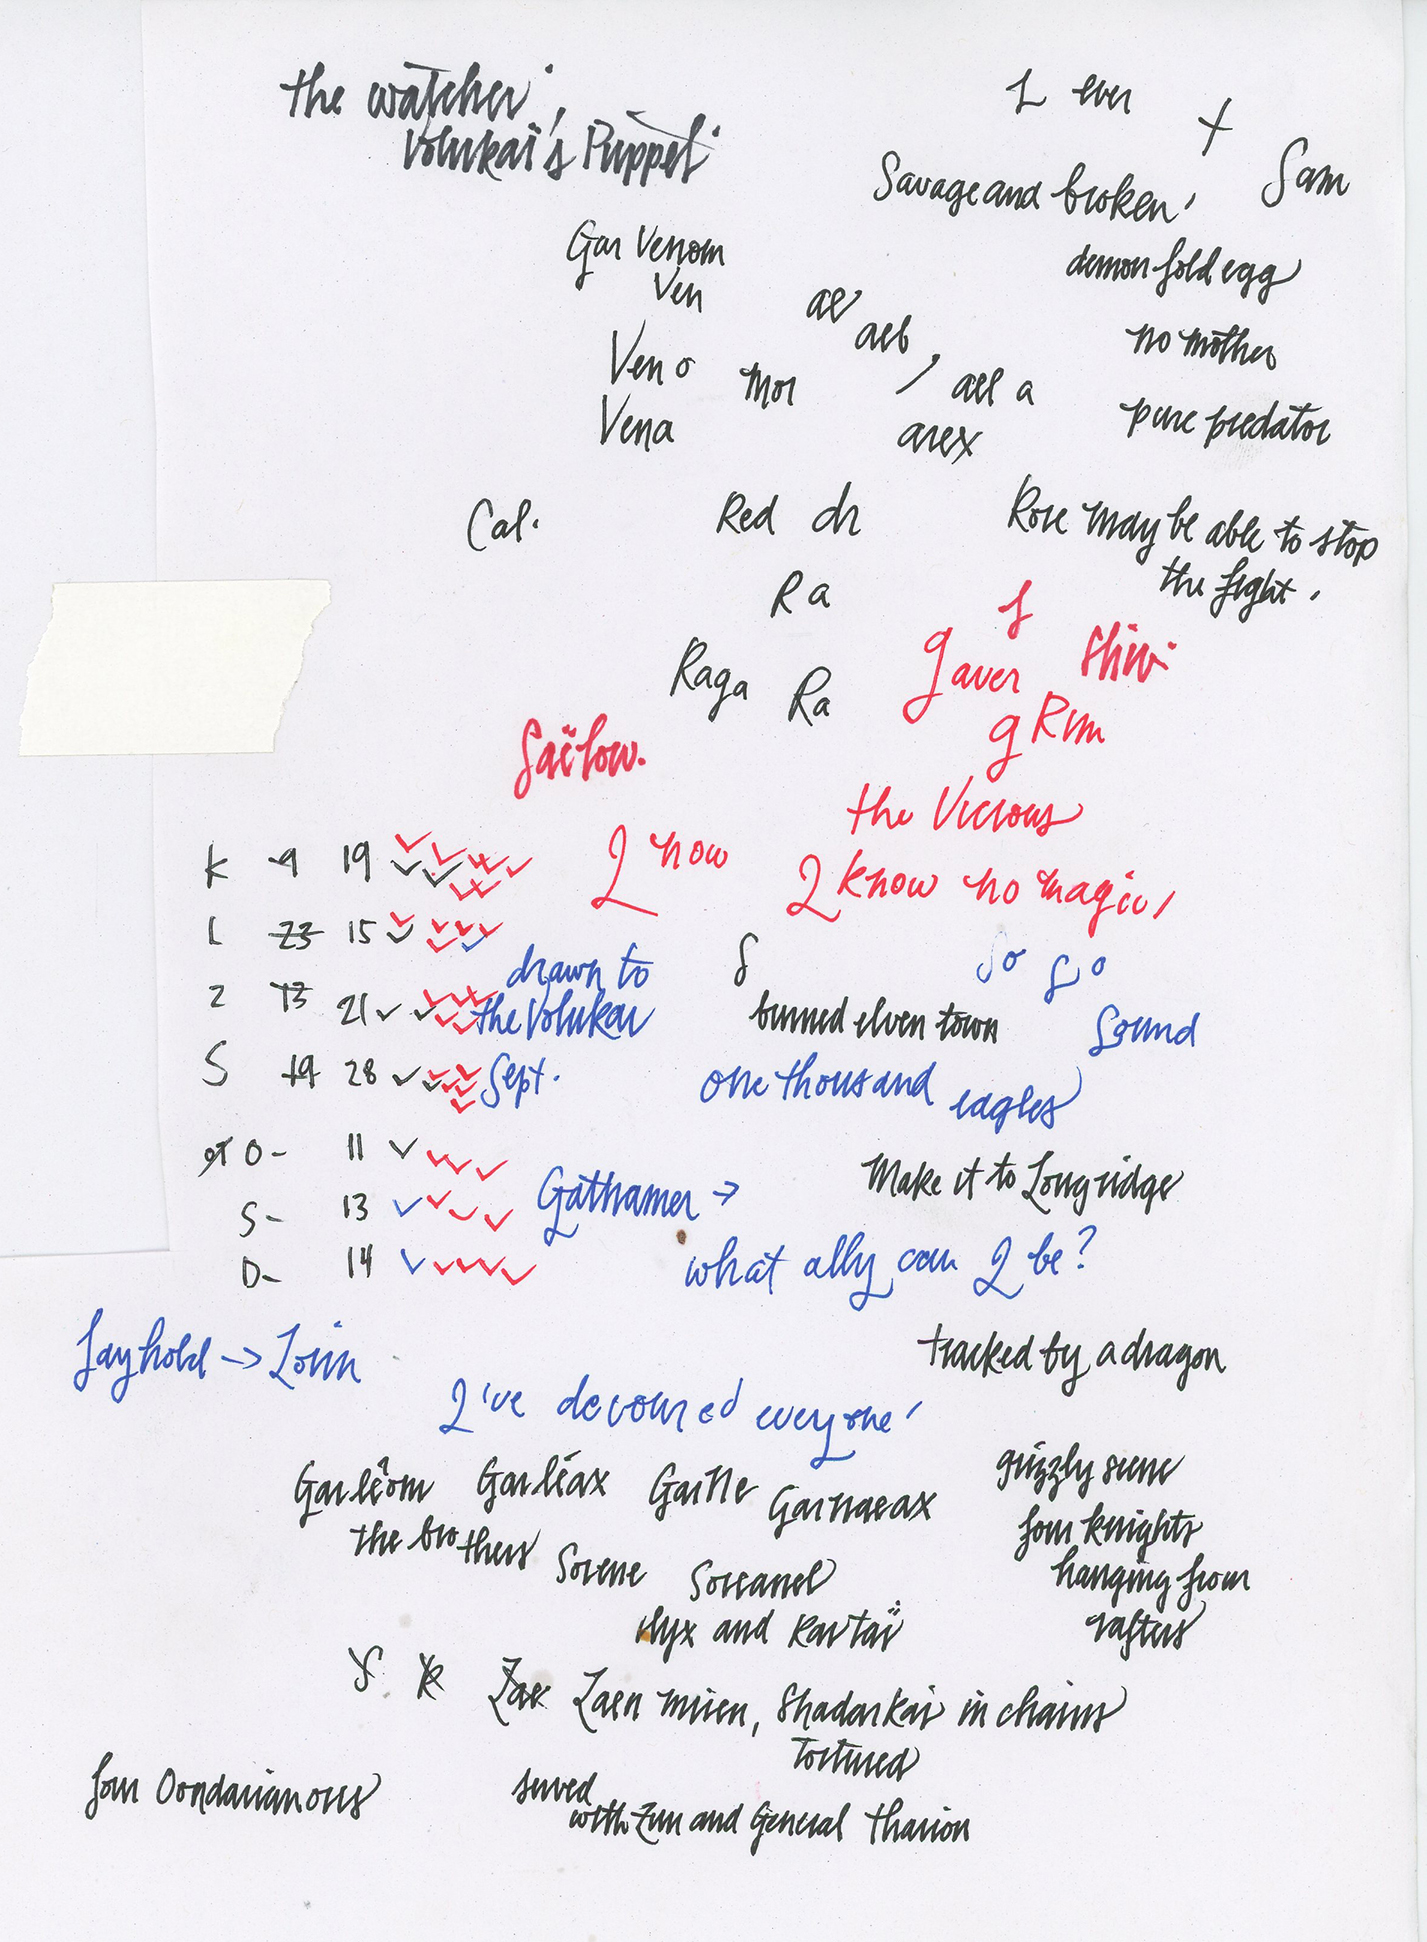 the watcher,
Volukai's Puppet
L ever
+
Sam
Savage and broken,
Gar Venom
Ven
demon fold egg
ae
aeb,
no mother
Ven o
mor
ael a
Vena
arex
pure predator
Cal.
Red dr
Rose may be able to stop
the fight.
Ra
f
gaver
Raga Ra
g Rim
the Vicious
K 9 19
I now
I know no magic,
L 23 15
drawn to
S
So So
Z 13 21
the Volukai
burned elven town
Sound
S 19 28
Sept.
one thousand eagles
O- 11
Make it to Longridge
S- 13
Gathamer →
D- 14
what ally can I be?
Layhold → Lorin
tracked by a dragon
I've devoured everyone,
Garleom Garleax Garnaeax
grizzly scene
the brothers
four knights
Sorene Soreanel
hanging from
Nyx and Kartaï
rafters
S K Zae Zaen mrien, Shadarkai in chains
tortured
four Oondarian orcs
served
with Zun and General Tharion